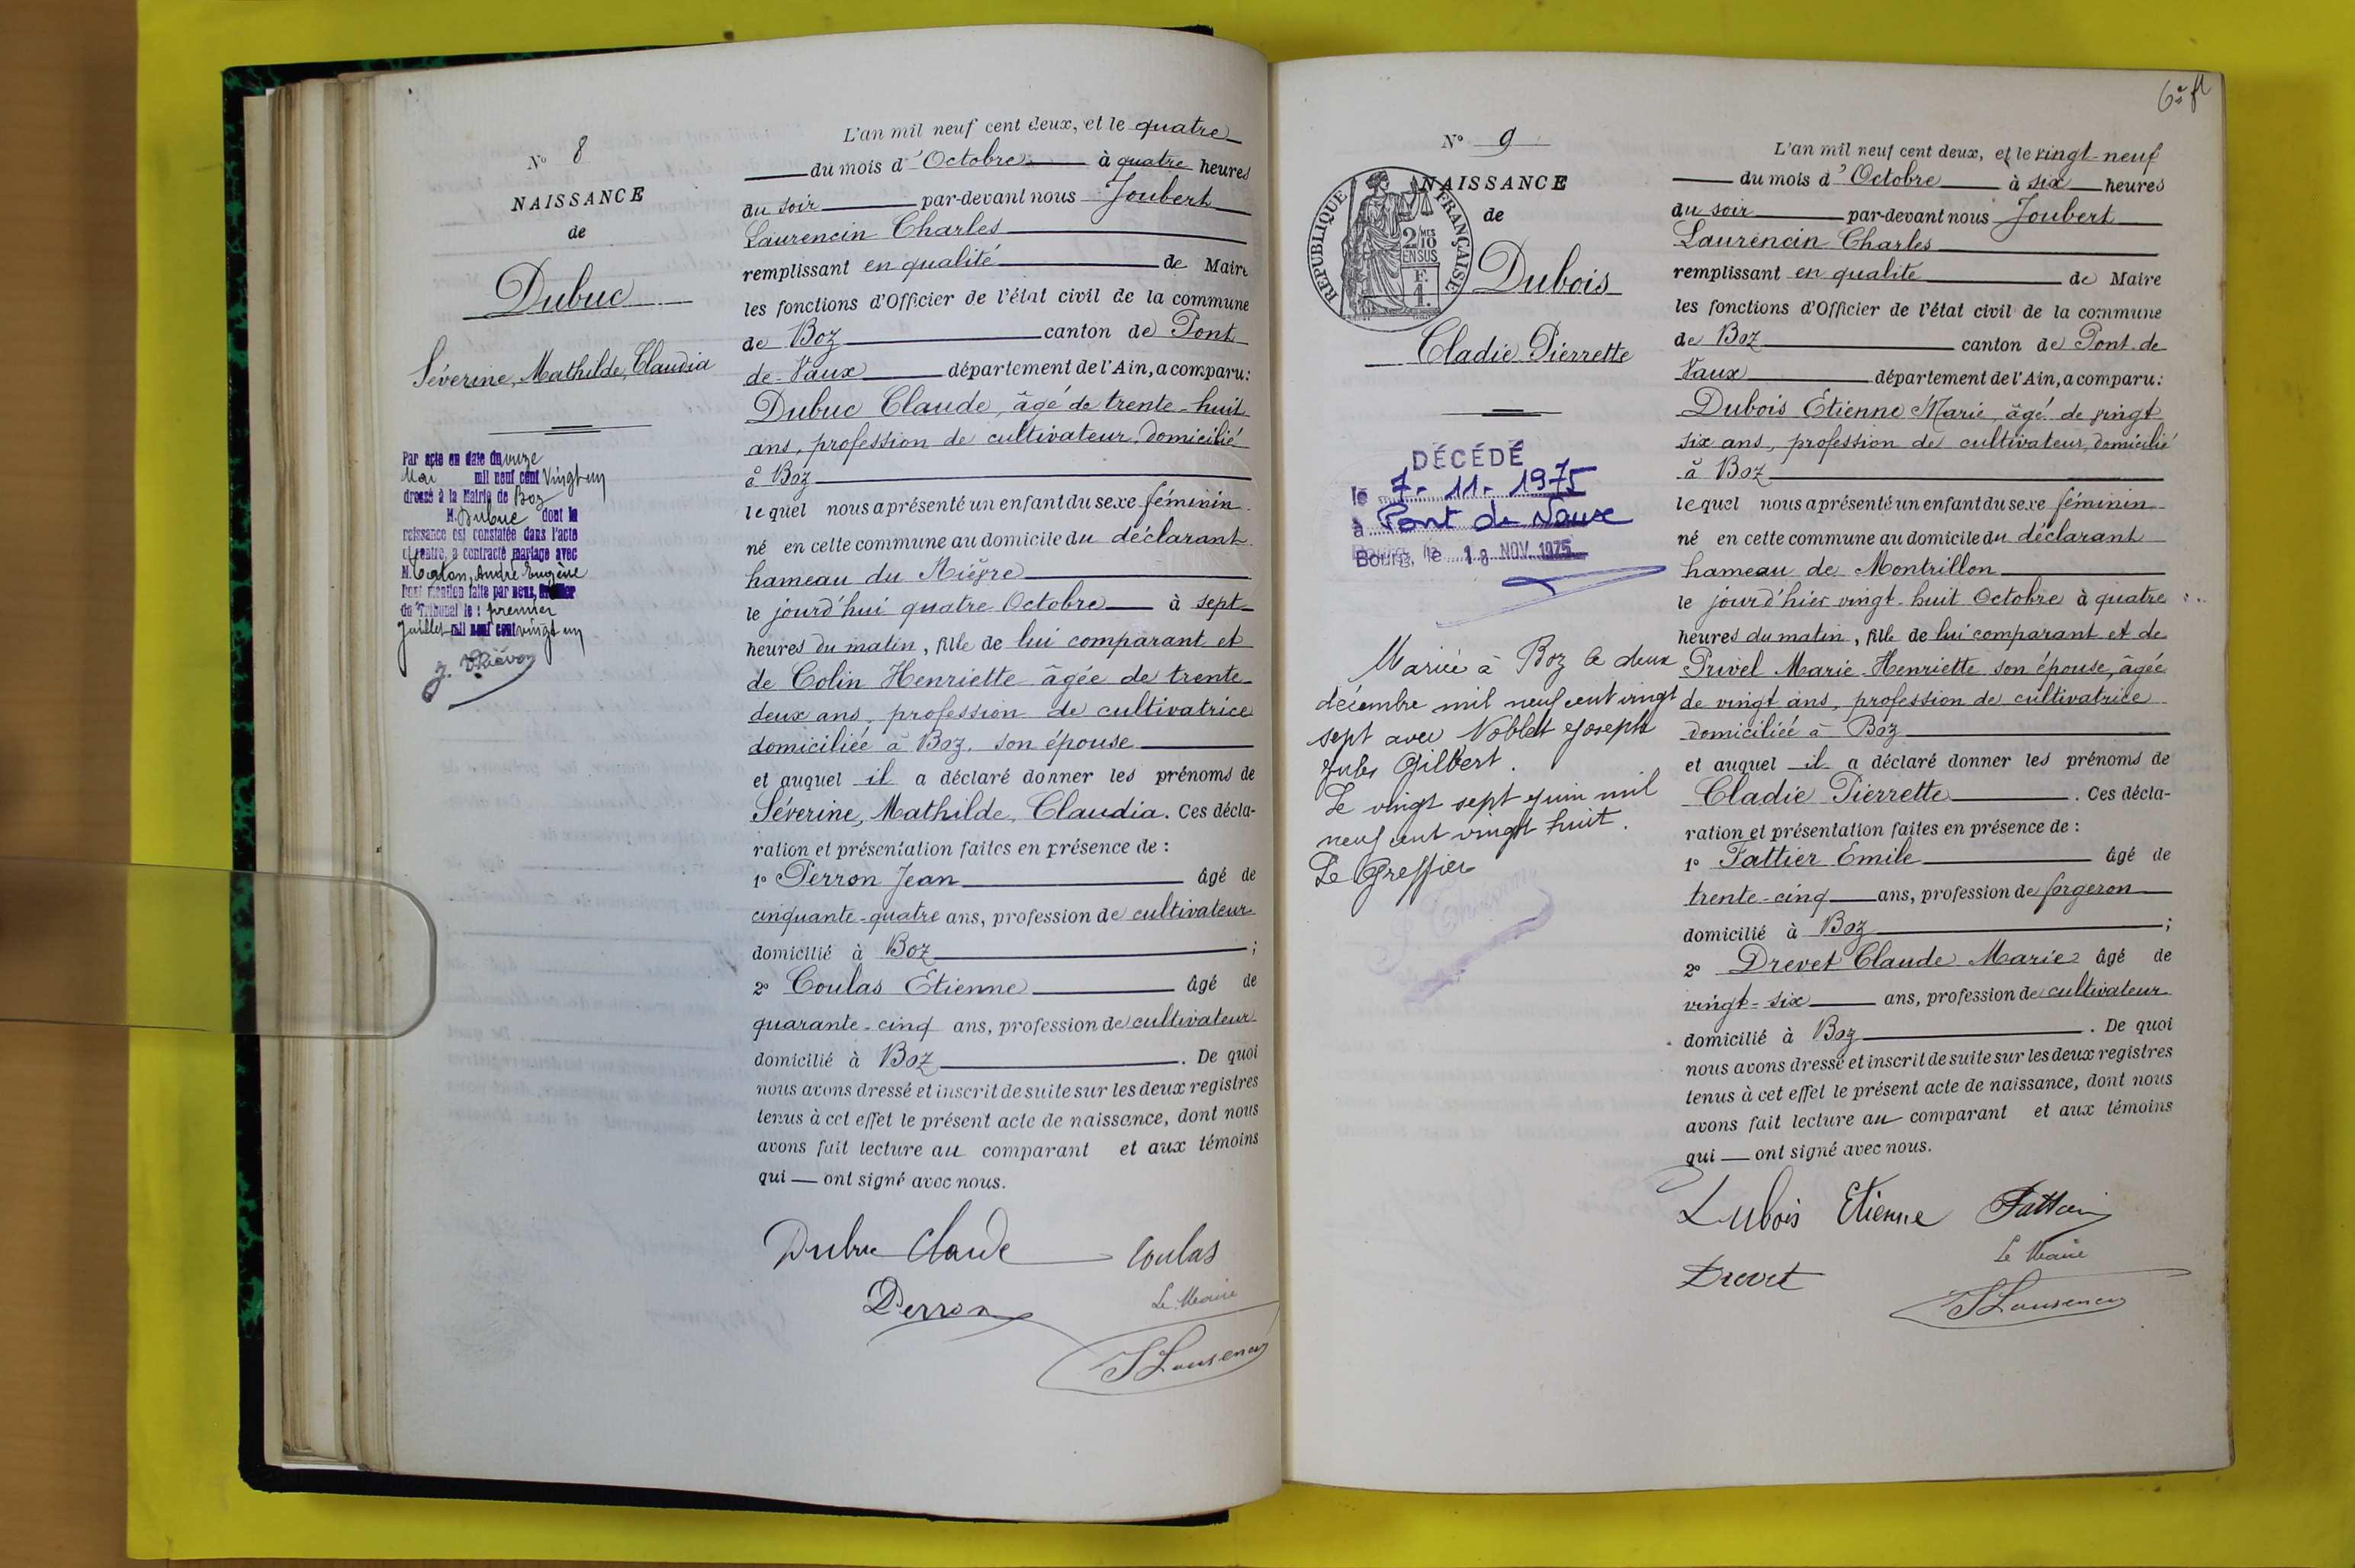 N° 8
NAISSANCE
de
Dubuc
Séverine, Mathilde, Claudia
Par acte en date du onze
Mai mil neuf cent Vingt un
dressé à la Mairie de Boz
M. Dubuc dont la
naissance est constatée dans l'acte
ci-contre, a contracté mariage avec
M. Caton, André Eugène
Pour mention faite par nous, Greffier
du Tribunal le : premier
Juillet mil neuf cent vingt un
L'an mil neuf cent deux, et le quatre
du mois d'Octobre à quatre heures
du soir par-devant nous Joubert
Laurencin Charles
remplissant en qualité de Maire
les fonctions d'Officier de l'état civil de la commune
de Boz canton de Pont
de-Vaux département de l'Ain, a comparu:
Dubuc Claude, âgé de trente-huit
ans, profession de cultivateur, domicilié
à Boz
lequel nous a présenté un enfant du sexe féminin
né en cette commune au domicile du déclarant
hameau du
le jourd'hui quatre Octobre à sept
heures du matin, fille de lui comparant et
de Colin Henriette âgée de trente
deux ans, profession de cultivatrice
domiciliée à Boz, son épouse
et auquel il a déclaré donner les prénoms de
Séverine, Mathilde, Claudia. Ces décla-
ration et présentation faites en présence de :
1° Perron Jean âgé de
cinquante-quatre ans, profession de cultivateur
domicilié à Boz ;
2° Coulas Etienne âgé de
quarante-cinq ans, profession de cultivateur
domicilié à Boz . De quoi
nous avons dressé et inscrit de suite sur les deux registres
tenus à cet effet le présent acte de naissance, dont nous
avons fait lecture au comparant et aux témoins
qui ont signé avec nous.
Dubuc Claude Coulas
Perron Le Maire
6e ft
N° 9
NAISSANCE
de
RÉPUBLIQUE FRANÇAISE
2/10MES
EN SUS
F.
1.
Dubois
Cladie Pierrette
DÉCÉDÉ
le 7-11-1975
à Pont de Vaux
Bourg, le 18 NOV. 1975
Mariée à Boz le deux
décembre mil neuf cent vingt
sept avec Noblet Joseph
Jules Gilbert.
Le vingt sept juin mil
neuf cent vingt huit.
Le Greffier
L'an mil neuf cent deux, et le vingt-neuf
du mois d'Octobre à six heures
du soir par-devant nous Joubert
Laurencin Charles
remplissant en qualité de Maire
les fonctions d'Officier de l'état civil de la commune
de Boz canton de Pont de
Vaux département de l'Ain, a comparu:
Dubois Etienne Marie, âgé de vingt
six ans, profession de cultivateur, domicilié
à Boz
lequel nous a présenté un enfant du sexe féminin
né en cette commune au domicile du déclarant
hameau de Montrillon
le jourd'hier vingt-huit Octobre à quatre
heures du matin, fille de lui comparant et de
Privel Marie Henriette son épouse, âgée
de vingt ans, profession de cultivatrice
domiciliée à Boz
et auquel il a déclaré donner les prénoms de
Cladie Pierrette . Ces décla-
ration et présentation faites en présence de :
1° Fattier Emile âgé de
trente-cinq ans, profession de forgeron
domicilié à Boz ;
2° Drevet Claude Marie âgé de
vingt-six ans, profession de cultivateur
domicilié à Boz . De quoi
nous avons dressé et inscrit de suite sur les deux registres
tenus à cet effet le présent acte de naissance, dont nous
avons fait lecture au comparant et aux témoins
qui ont signé avec nous.
Dubois Etienne Fattier
Drevet Le Maire